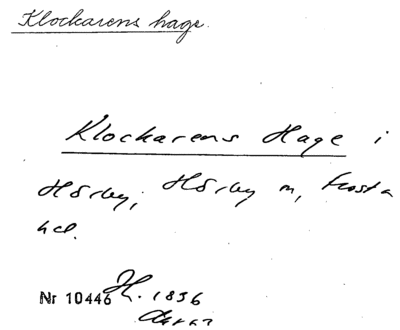 Klockarens hage.
Klockarens Hage i
Hörby, Hörby sn, Frosta
hd.
Nr 10446 H. 1836